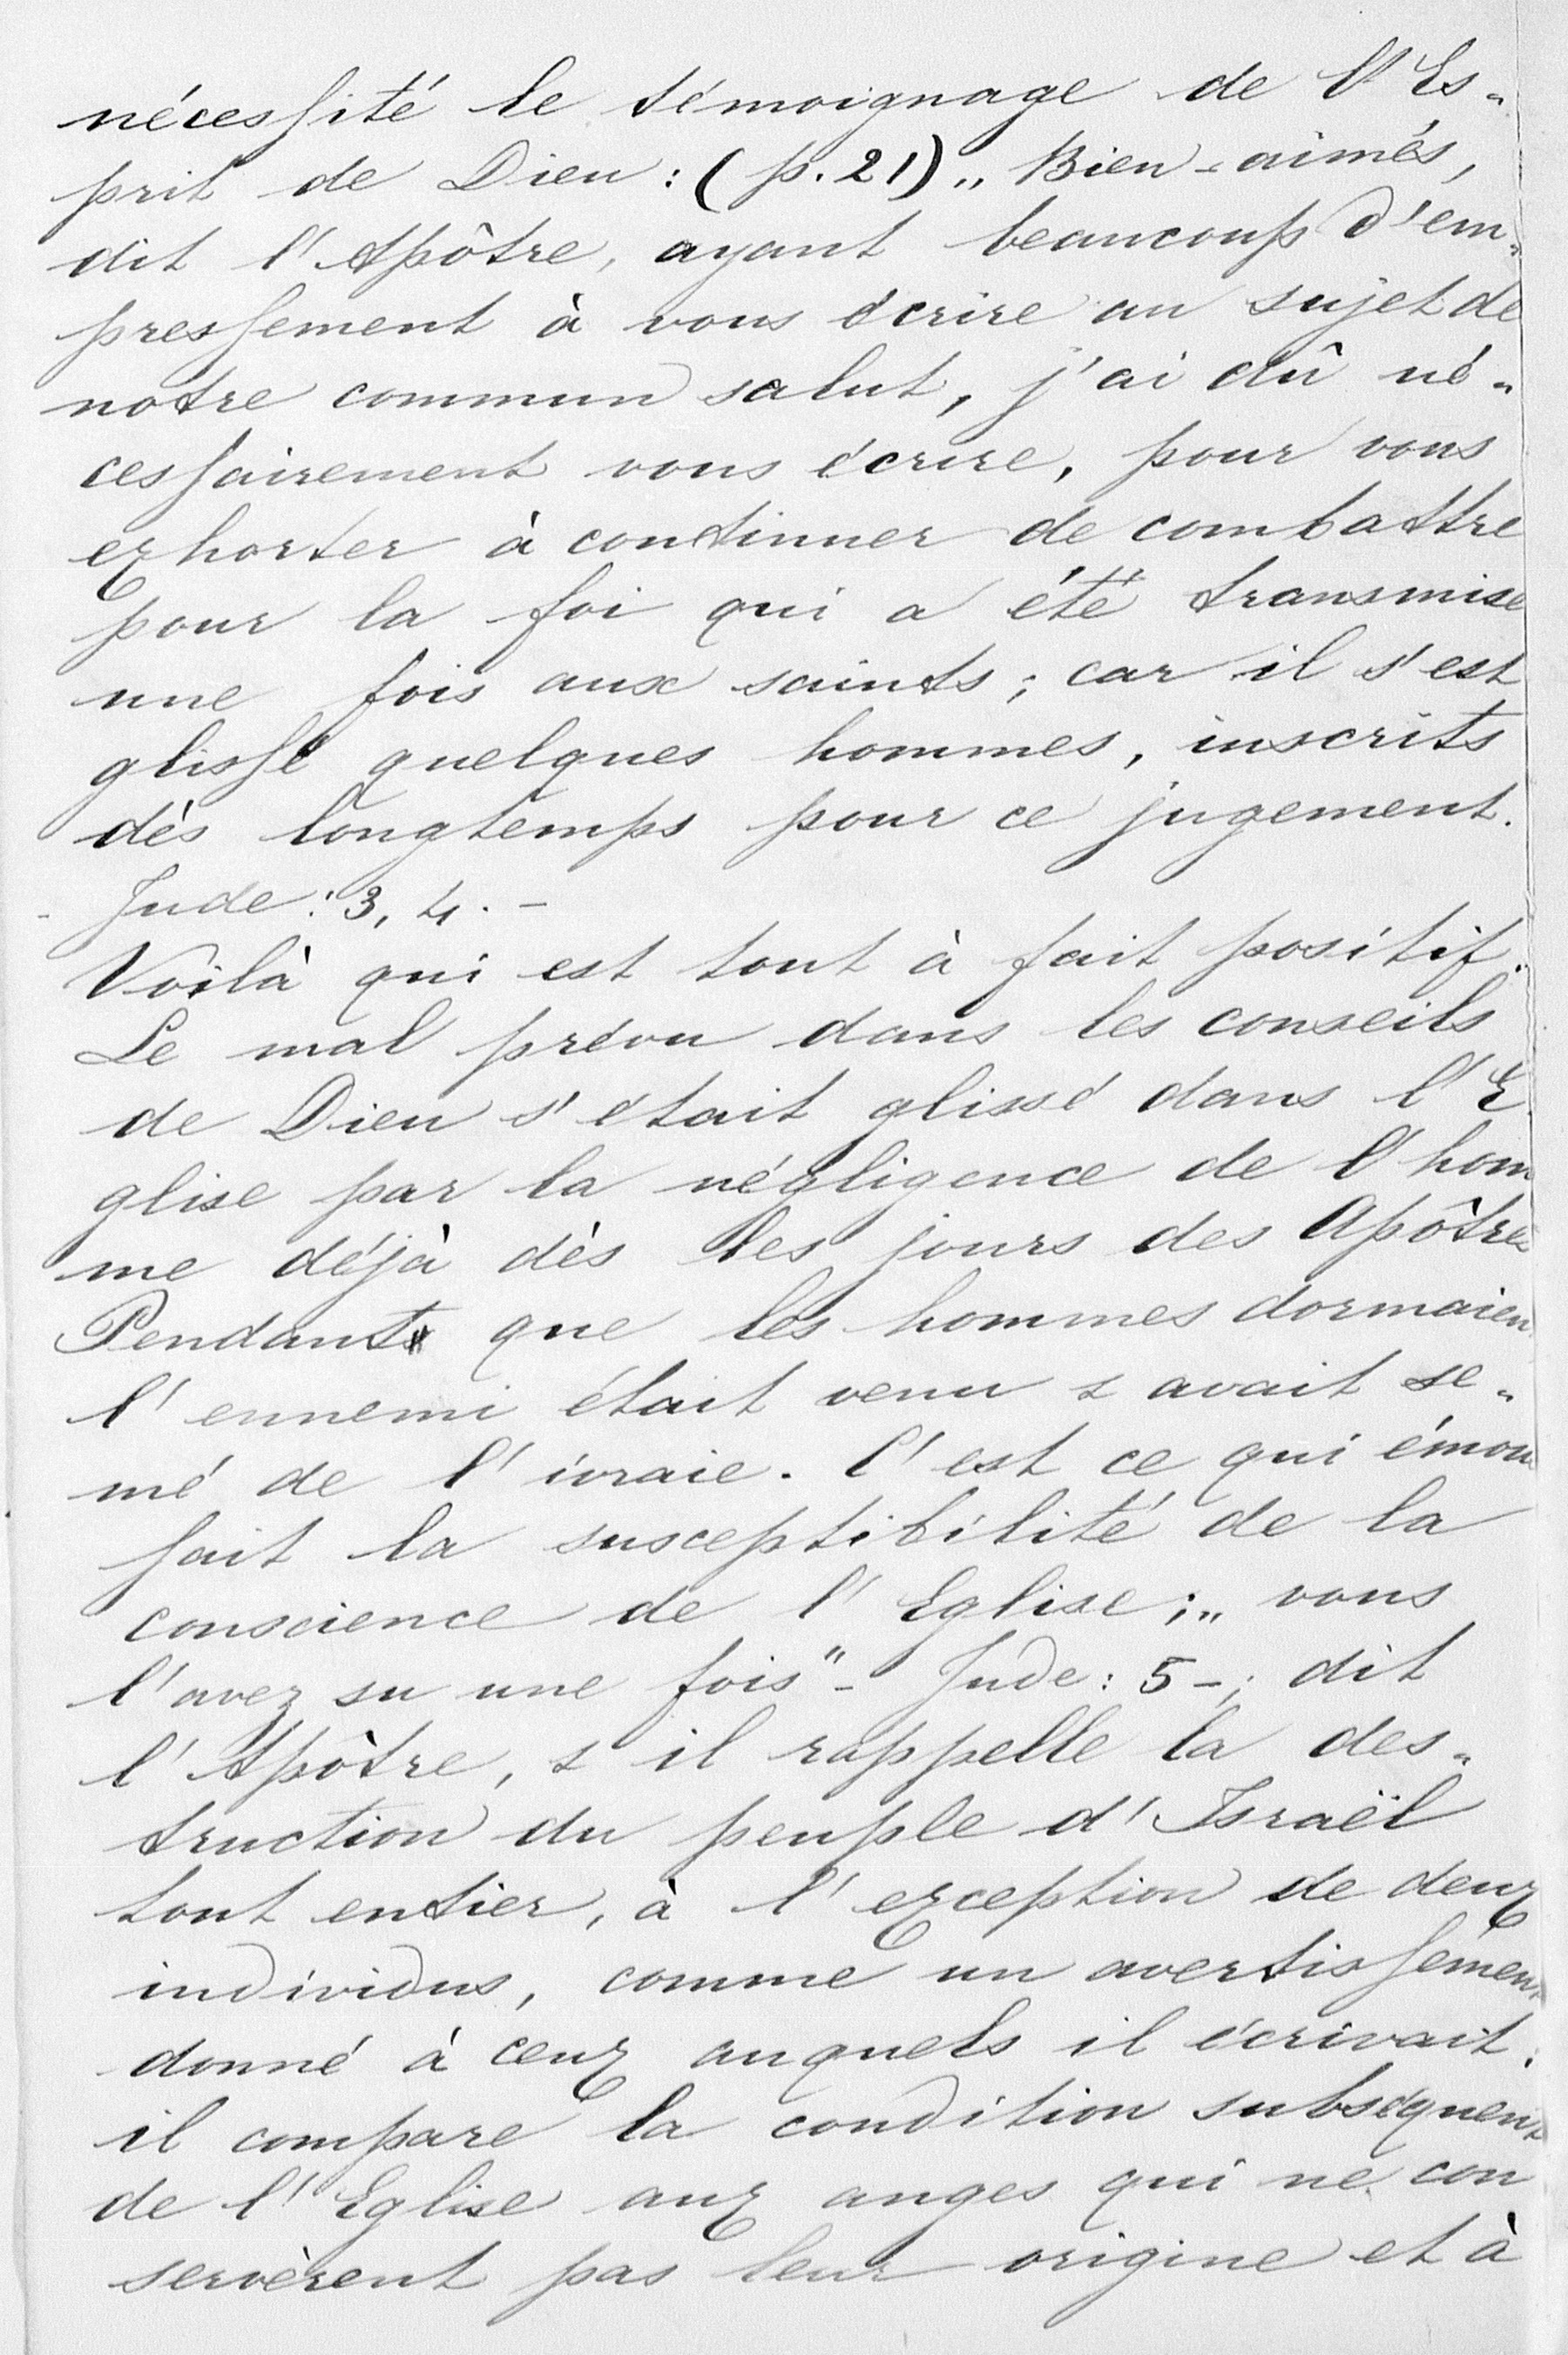 nécessité le témoignage de l'Es„
prit de Dieu : (p. 21) „ Bien-aimés,
dit l'Apôtre, ayant beaucoup d'em„
pressement à vous écrire au sujet de
notre commun salut, j'ai dû né„
cessairement vous écrire, pour vous
exhorter à continuer de combattre
pour la foi qui a été transmise
une fois aux saints ; car il s'est
glissé quelques hommes, inscrits
dès longtemps pour ce jugement.
- Jude : 3, 4. -
Voilà qui est tout à fait positif.
Le mal prévu dans les conseils
de Dieu s'était glissé dans l'E
glise par la négligence de l'hom
me déjà dès les jours des Apôtres
Pendant que les hommes dormaien
l'ennemi était venu & avait se„
mé de l'ivraie. C'est ce qui émou
sait la susceptibilité de la
conscience de l'Eglise ; „ vous
l'avez su une fois" - Jude : 5 -; dit
l'Apôtre, & il rappelle la des„
truction du peuple d'Israël
tout entier, à l'exception de deux
individus, comme un avertissemen
donné à ceux auquels il écrivait.
il compare la condition subséquen
de l'Eglise aux anges qui ne con
servèrent pas leur origine et à